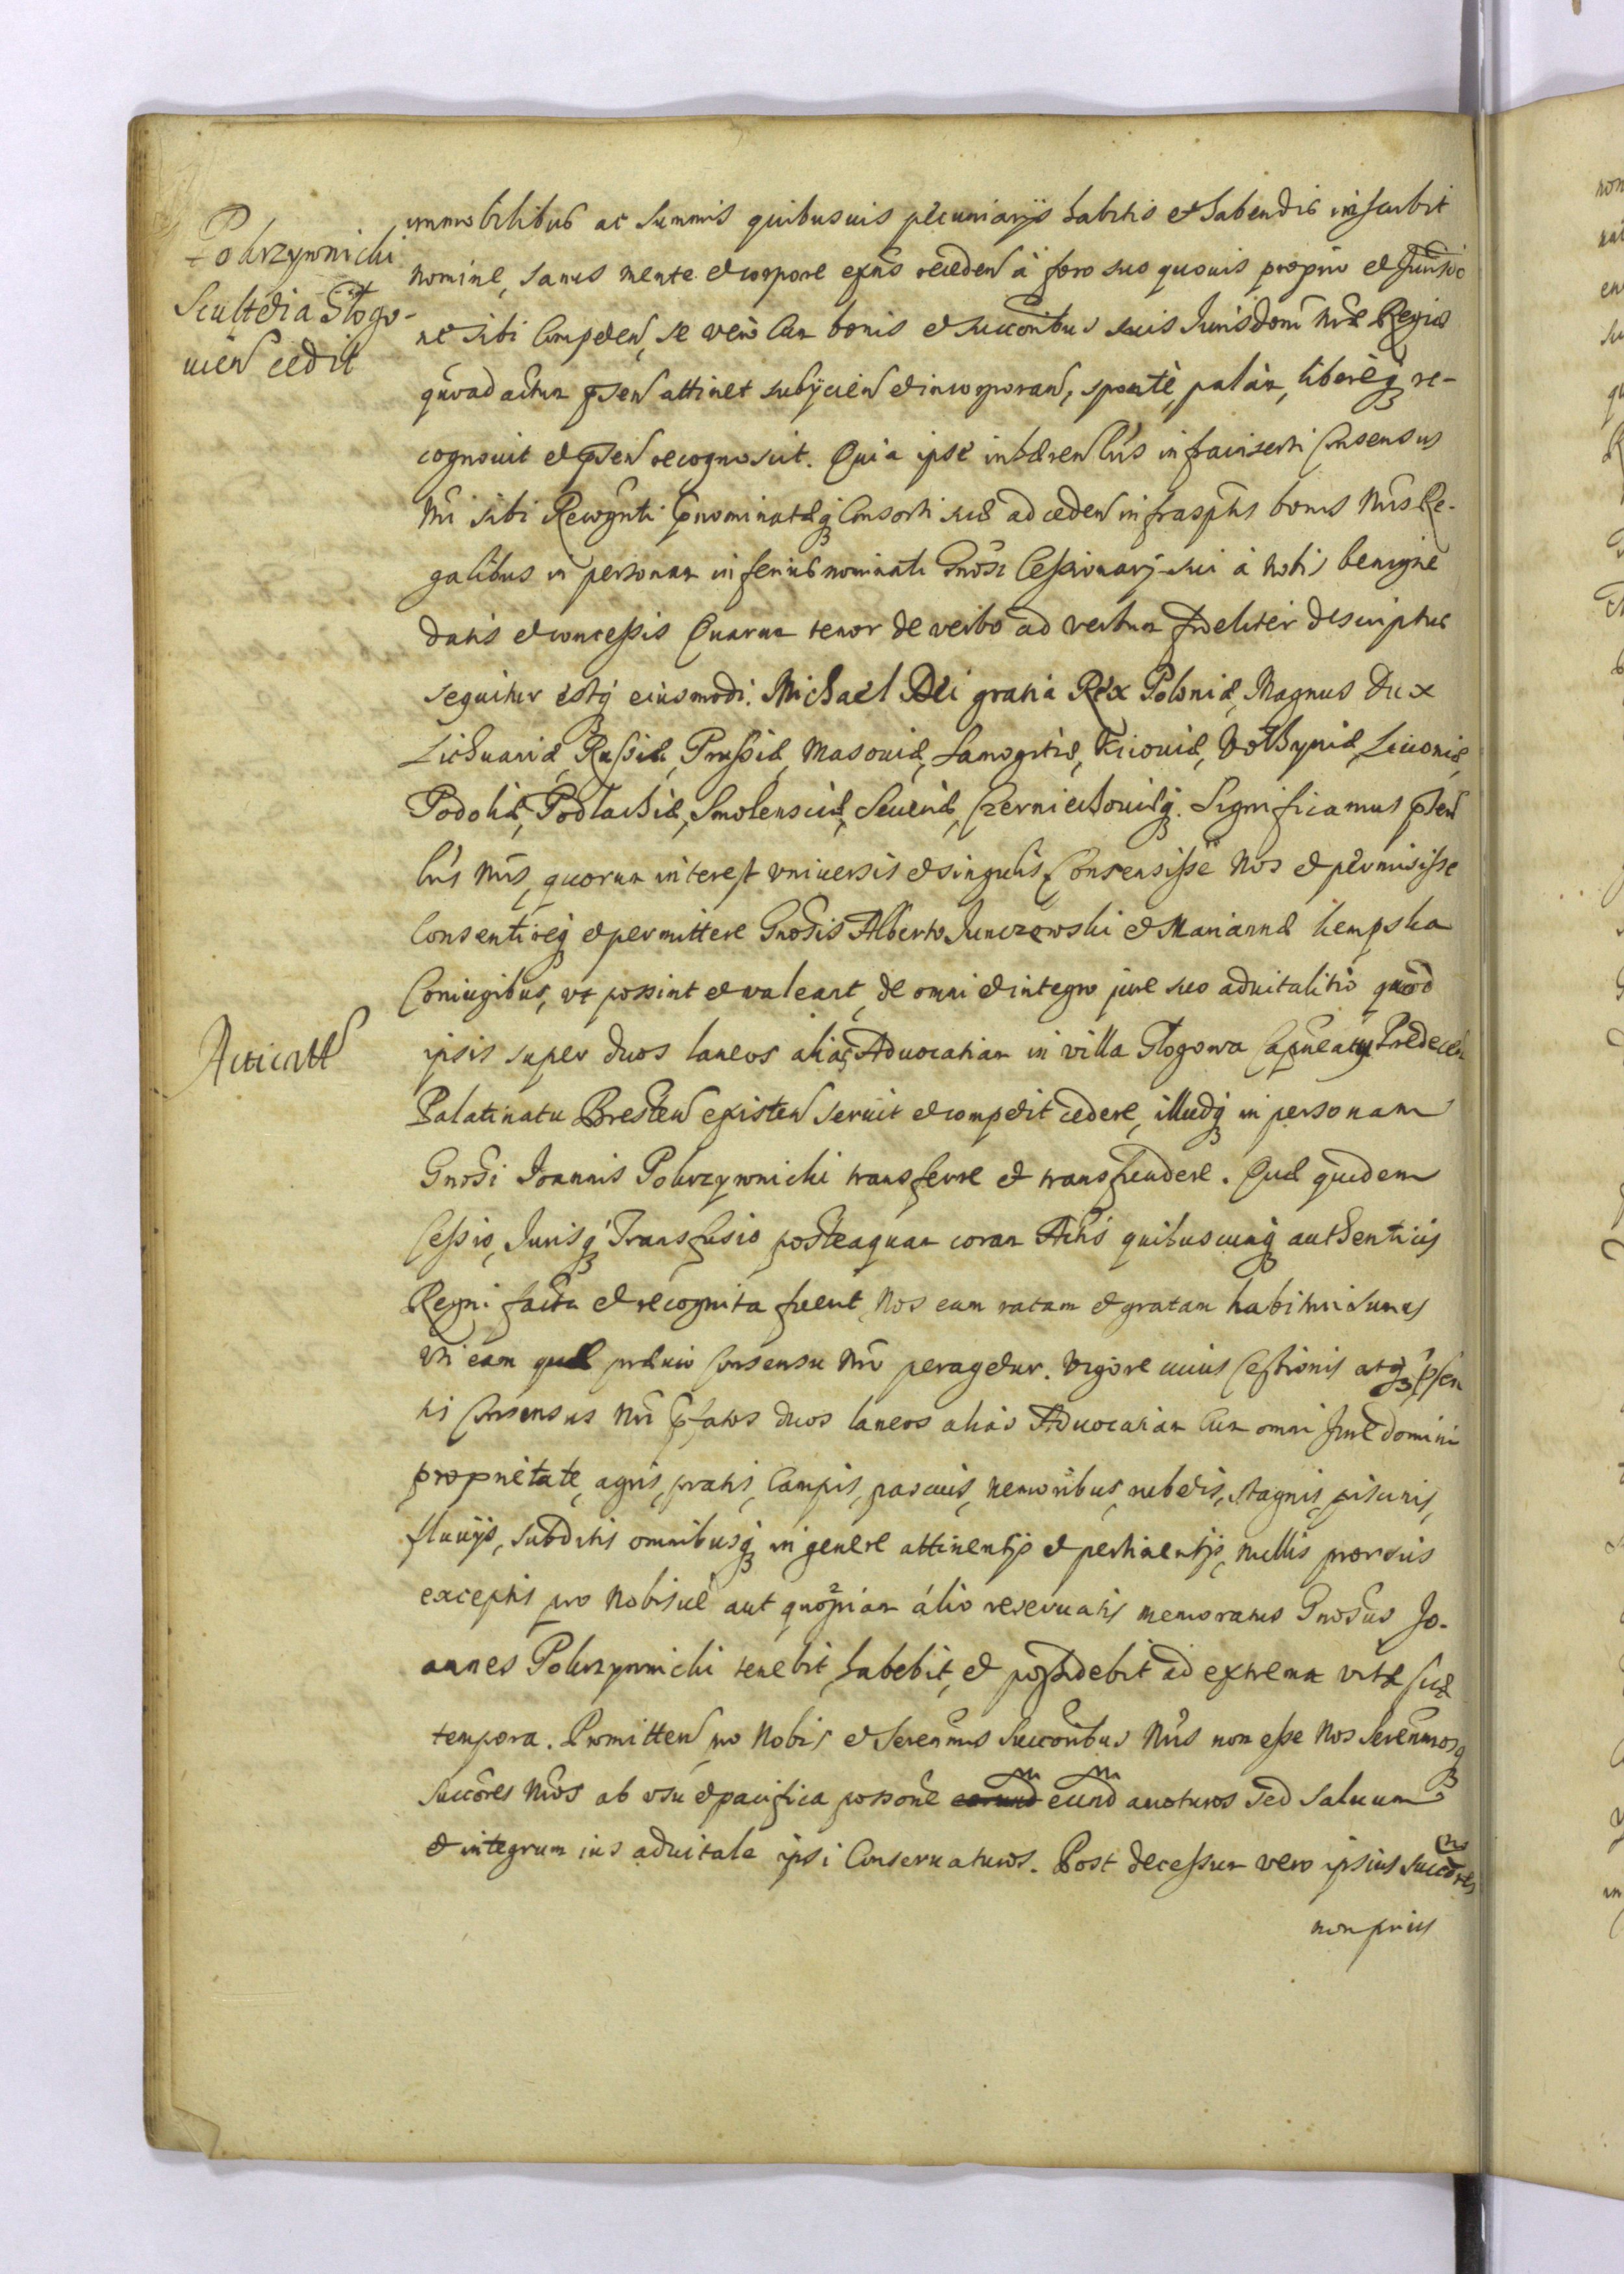 Pokrzywnicki
Scultetia Głogo-
uień cedit
immobilibus ac summis quibusuis pecuniarijs habitis et habendis inscribit
nomine, sanus mente et corpore exńs receden à foro suo quouis proprio et Jurisdic
ne sibi Competeń, se verò Cum bonis et succoribus suis Jurisdoni Nrae Regiae
quoad actum pseń attinet subijcień et incorporań, spontè, palàm, liberèq; re-
cognouit et pseń recognoscit. Quia ipse inhaereń Lris infrainserti Consensus
Nri sibi Recognti pnominataeq; Consorti suae ad cedeń infrasptis bonis Nris Re-
galibus in personam inferius nominati Gnosi Cessionarij sui à nobis benigne
datis et concessis Quarum tenor de verbo ad verbum fideliter descriptus
sequitur estq; eiusmodi. Michael Dei gratia Rex Poloniae, Magnus Dux
Lithuaniae, Russiae, Prussiae, Masouiae, Samogitiae, Kiiouiae, Volhyniae, Liuoniae,
Podoliae, Podlachiae, Smolensciae, Seueriae, Czerniechouiaeq; Significamus pseń
Lris Nris, quorum interest vniuersis et singulis, Consensisse Nos et permisisse
Consentireq; et permittere Gnosis Alberto Junczewski et Mariannae Kempska
Coniugibus, vt possint et valeant, de omni et integro jure suo aduitalitio quod
ipsis super duos laneos alias Aduocatiam in villa Głogowa Capneatu Praedeceń
Acticatt
Palatinatu Bresteń existeń seruit et competit cedere, illudq; in personam
Gnosi Joannis Pokrzywnicki transferre et transfundere. Quae quidem
Cessio, Jurisq; Transfusio posteaquam coram Actis quibuscunq; authenticis
Regni facta et recognita fuerit, Nos eam ratam et gratam habituri sumus
vti eam quae praeuio Consensu Nro peragetur. Vigore cuius Cessionis atq; psen
tis Consensus Nri pfatos duos laneos alias Aduocatiam Cum omni Jure domini
proprietate, agris, pratis, Campis, pascuis, nemoribus, rubetis, stagnis, piscinis,
fluuijs, subditis omnibusq; in genere attinentijs et pertinentijs, nullis prorsus
exceptis pro Nobisue aut quopiam alio reseruatis memoratus Gnosus Jo-
annes Pokrzywnicki tenebit, habebit, et possidebit ad extrema vitae suae
tempora. Promitteń pro Nobis et Serenmis Succoribus Nris non esse Nos Serenmosq;
Succores Nros ab vsu et pacifica possone earund eund amoturos sed saluum
et integrum ius aduitale ipsi Conseruaturos. Post decessum vero ipsius succores
non prius